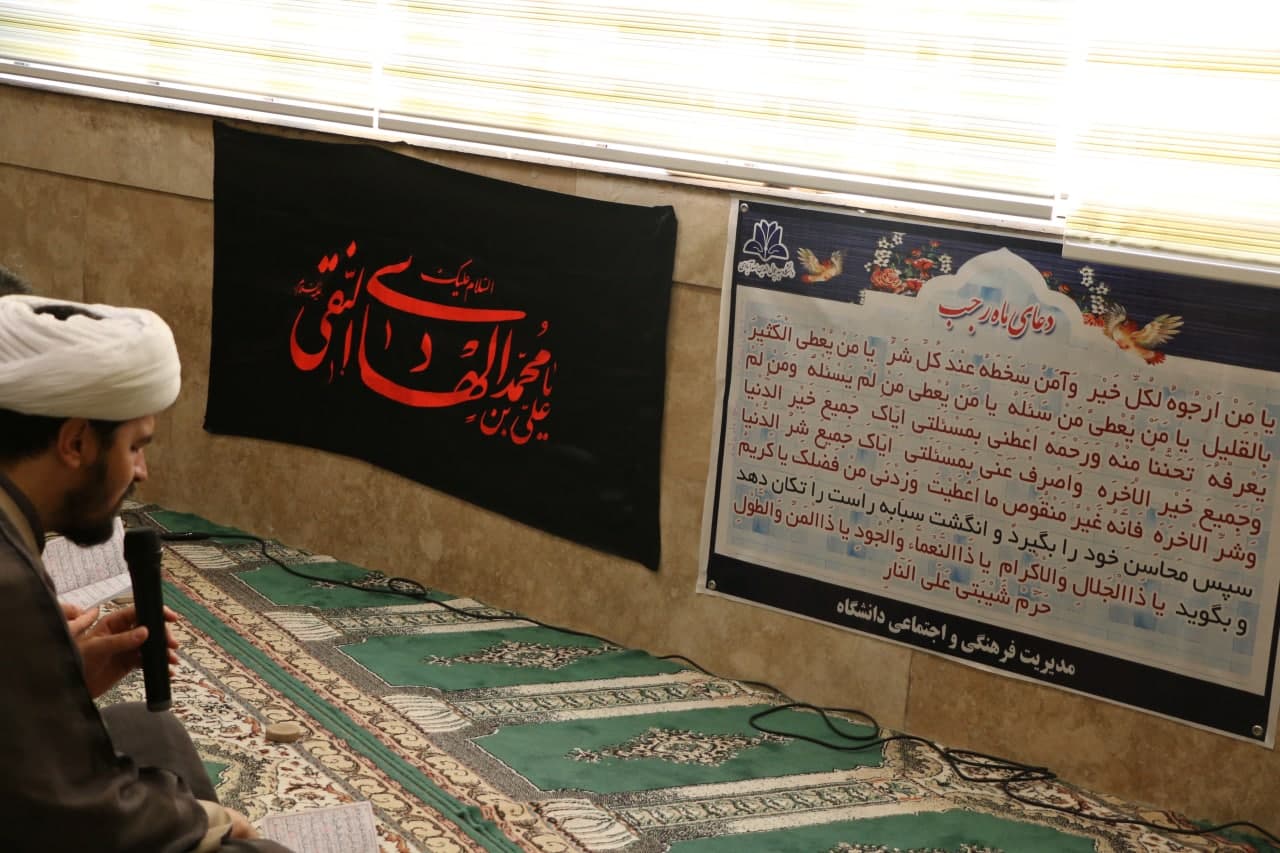 السلام علیک
یا محمد الهادی النقی
علی بن
دعای ماه رجب
یا مَنْ اَرْجوهُ لِکُلِّ خَیْر وَآمَنُ سَخَطَهُ عِند کُلِّ شَرّ یا مَنْ یُعْطی الْکَثیرَ
بالْقَلیل یا مَنْ یُعْطی مَن سَئَلَهُ یا مَنْ یُعْطی مَن لَمْ یَسئَلهُ وَمَنْ لَم
یَعْرِفْهُ تَحَنُّنا مِنْهُ وَرَحْمَهً اَعطنی بمَسئَلتی ایّاکَ جَمیعَ خَیْرِ الدُّنیا
وَجَمیعَ خَیْرِ الاخِرَهِ وَاصرف عَنی بمَسئَلتی ایّاکَ جَمیعَ شَرِّ الدُّنیا
وَشَرِّ الاخِرَه فَانَّهُ غَیْرُ مَنْقُوصٍ ما اَعطَیْتَ وَزدْنی مِن فَضلِکَ یا کَریمُ
سپس محاسن خود را بگیرد و انگشت سبابه راست را تکان دهد
و بگوید یا ذَاالْجَلال وَالاکرام یا ذَاالنَّعْماء وَالجودِ یا ذَاالْمَنِّ وَالطَّوْلِ
حَرِّمْ شَیْبَتی عَلَی النار
مدیریت فرهنگی و اجتماعی دانشگاه